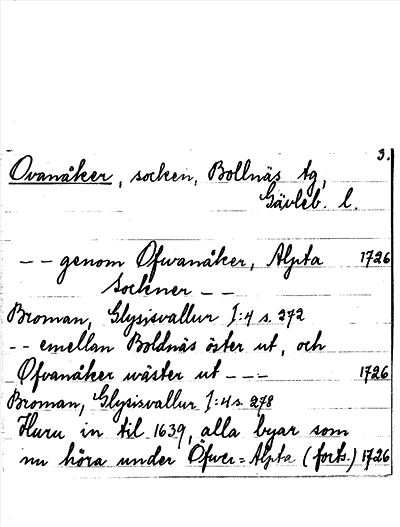 3.
Ovanåker, socken, Bollnäs tg,
Gävleb. l.
-- genom Öfwanåker, Alpta 1726
Sockner --
Broman, Glysisvallur I:4 s. 272
-- emellan Boldnäs öster ut, och
Öfvanåker wäster ut --- 1726
Broman, Glysisvallur I:4 s. 278
Huru in til 1639, alla byar som
nu höra under Öfwer=Alpta (forts.) 1726